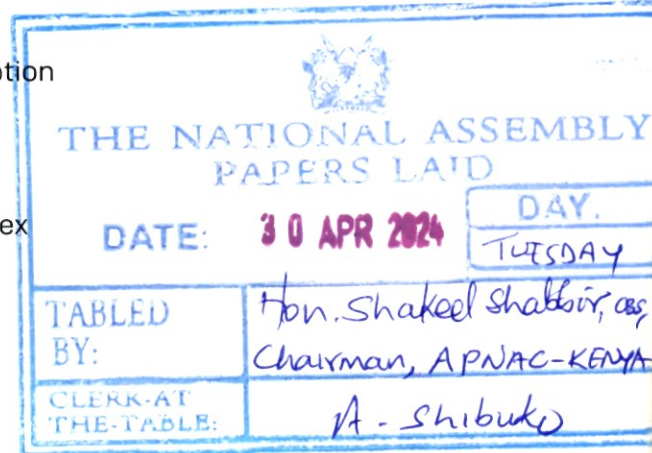 tion
THE NATIONAL ASSEMBLY
PAPERS LAID
ex
DATE: 30 APR 2024
DAY.
TUESDAY
TABLED BY:
Hon. Shakeel Shabbir, OBS,
Chairman, APNAC-KENYA
CLERK-AT THE-TABLE:
A. Shibuko